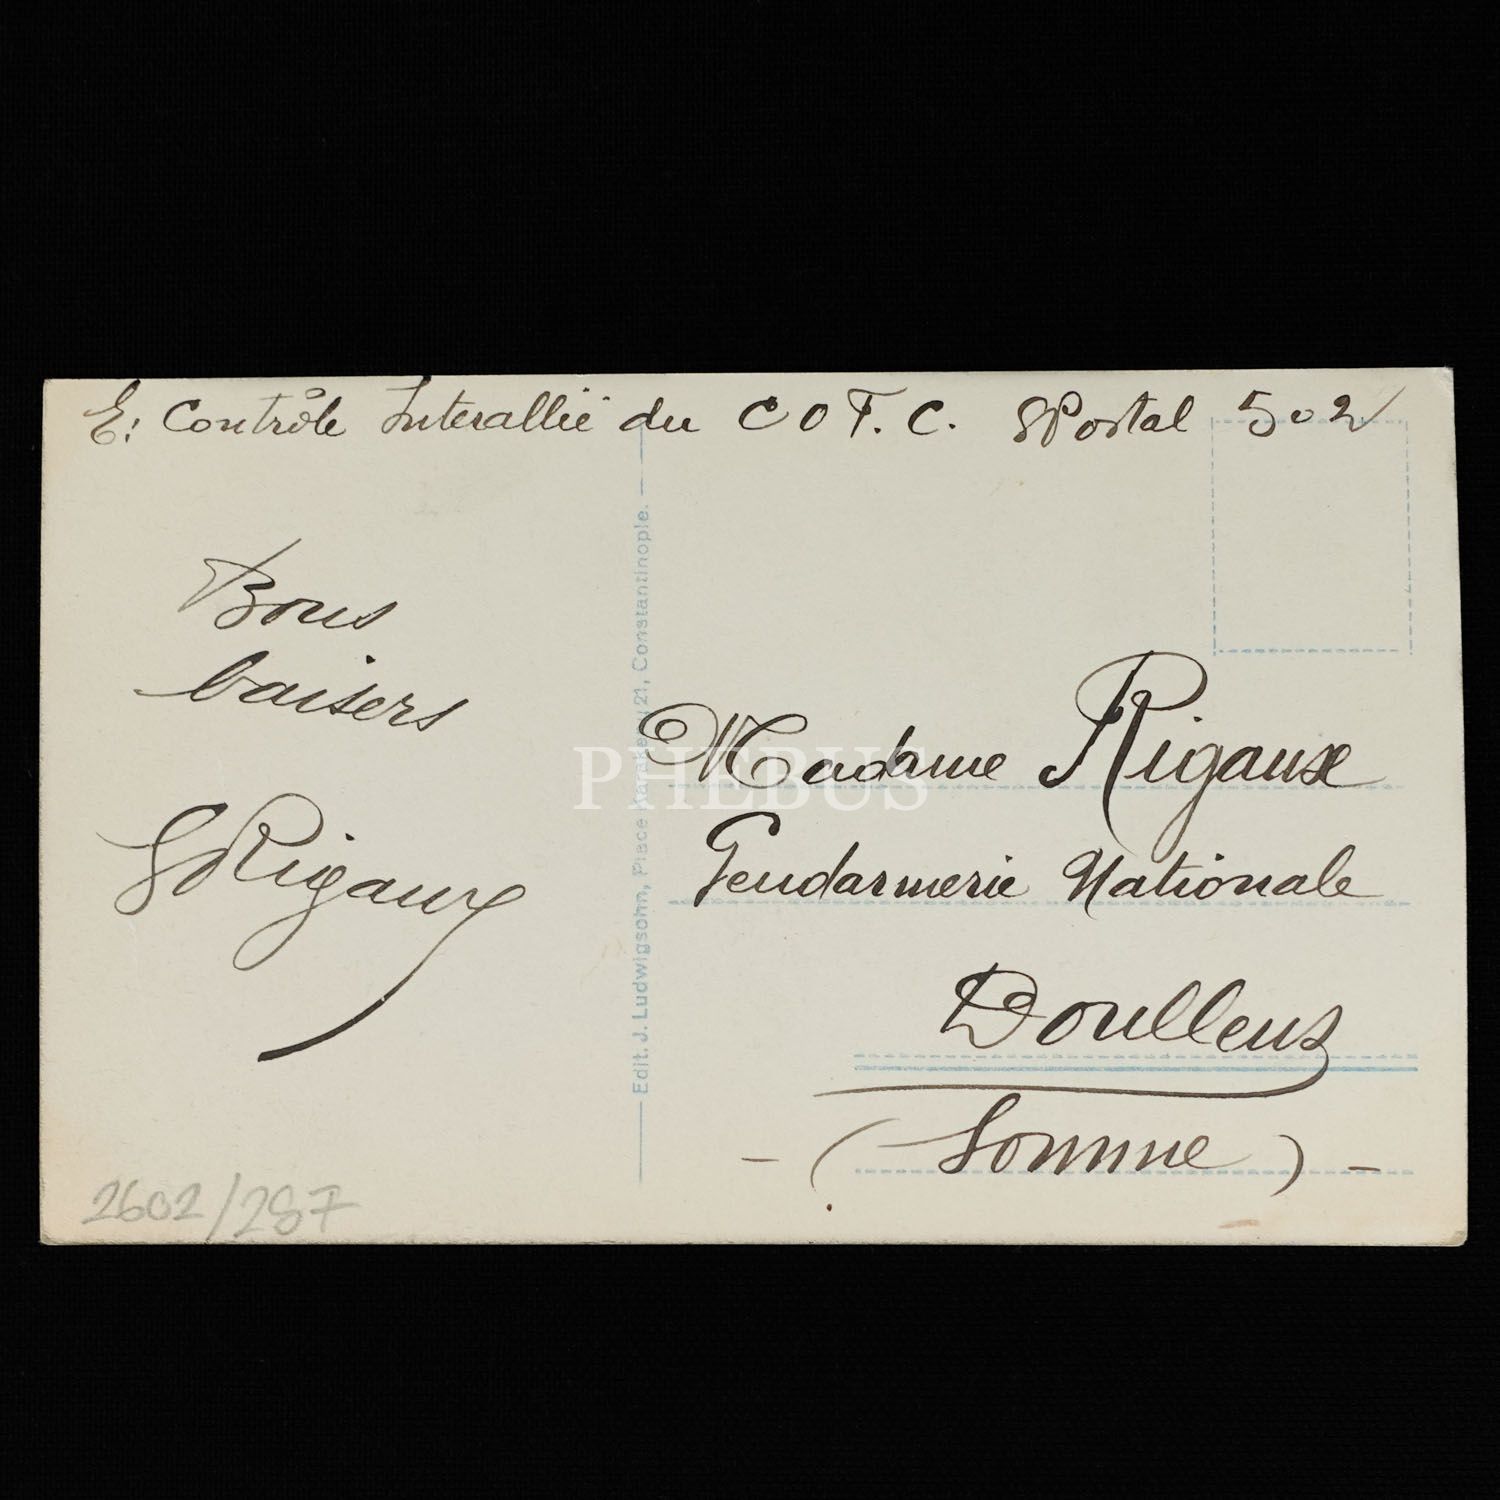 E: Contrôle Interallié du C O F. C. SPostal 502
Bons
baisers
Rigaux
Edit. J. Ludwigsohn, Place Karakeui 21, Constantinople.
Madame Rigaux
Gendarmerie Nationale
Doullens
- (Somme) -
2602/287
PHEBUS